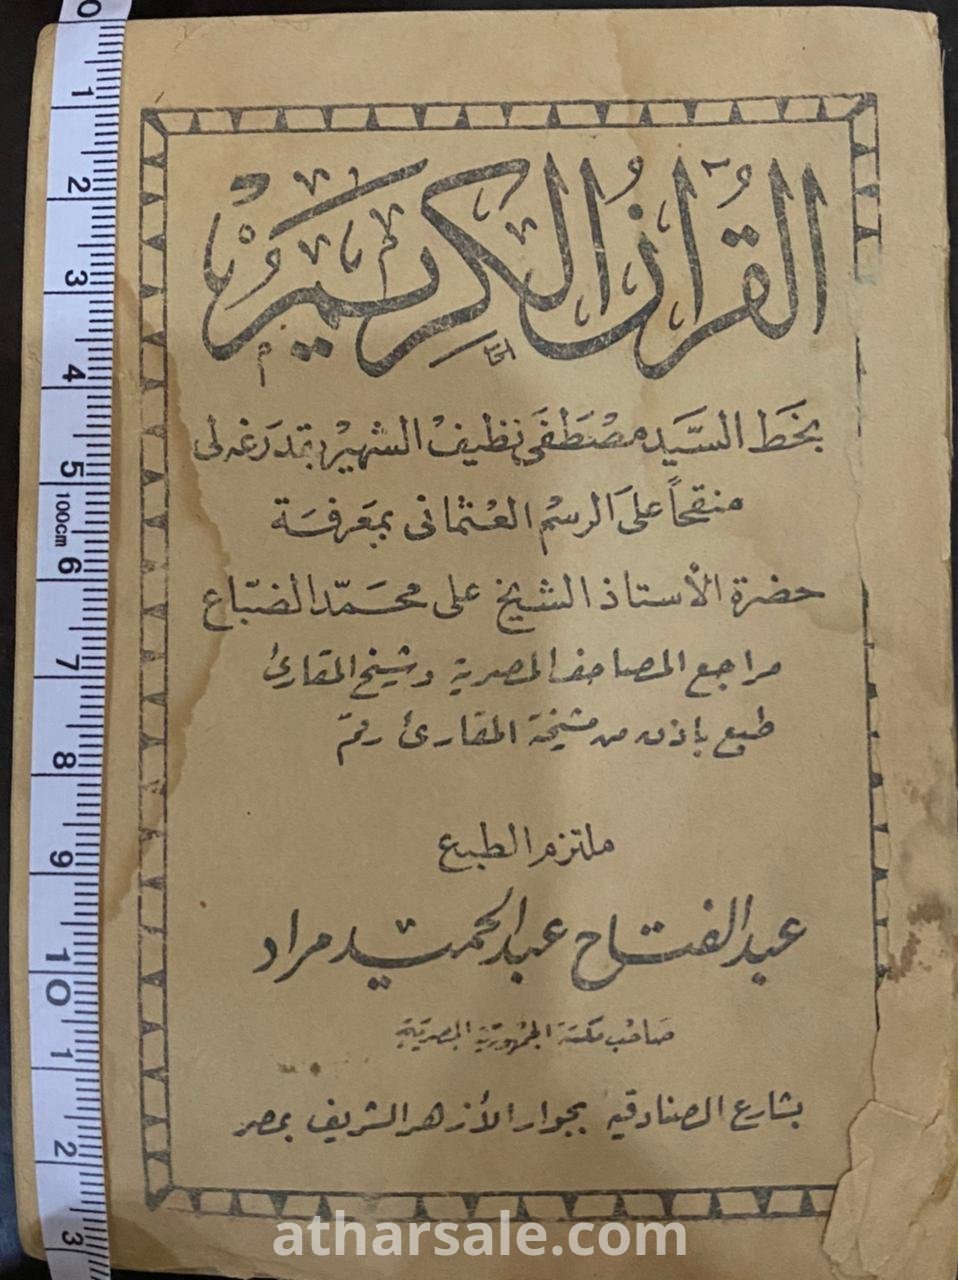 القُرآنُ الكَرِيمُ
بخَط السَّيَد مصْطَفَى نظيفْ الشهيرْ بقدَرغه لى
منقحاً علىَ الرسْم العثمانى بمَعَرفَة
حضرة الأستاذ الشيخ على محمّد الضبّاع
مراجع المصاحف المصرية وشيخ المقارئ
طبع بإذن من مشيخة المقارئ رقم
ملتزم الطبع
عبد الفتاح عبد الحميد مراد
صَاحبْ مكتبة الجمْهورَية المصريَة
بشارع الصنادقيه بجوار الأزهر الشريف بمصر
0
1
2
3
4
5
100cm
6
7
8
9
10
1
2
3
atharsale.com